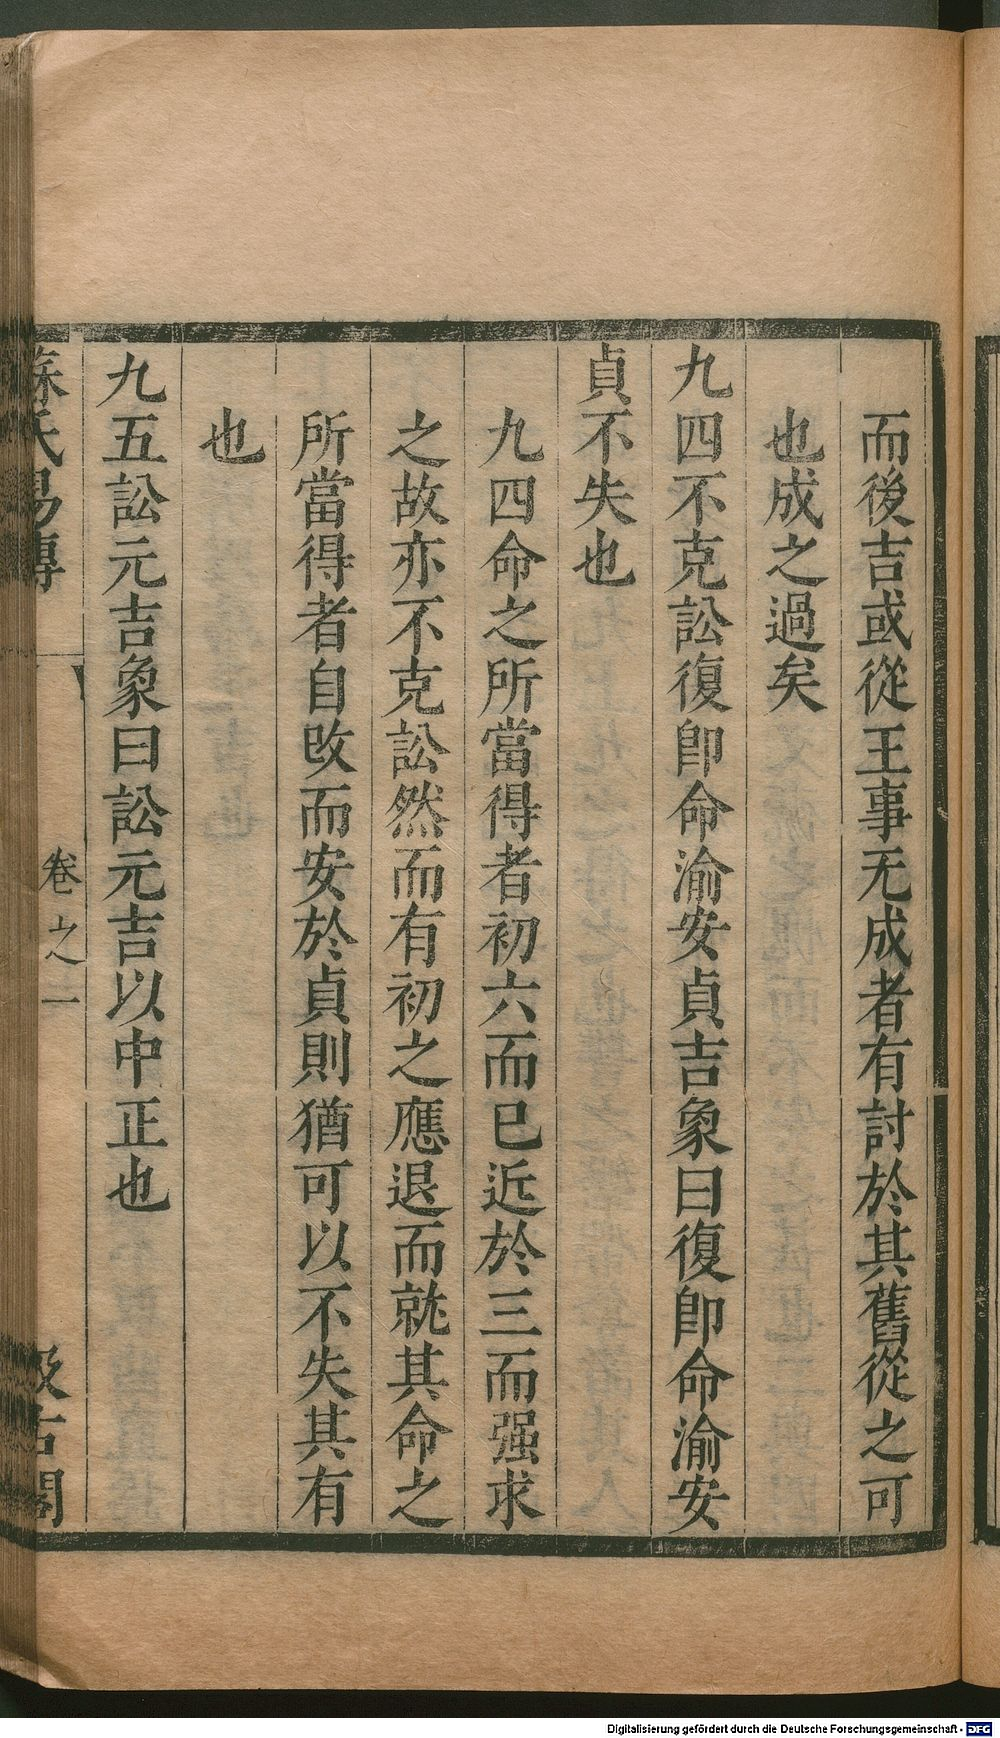 而後吉或從王事无成者有討於其舊從之可
也成之過矣
九四不克訟復卽命渝安貞吉象曰復卽命渝安
貞不失也
九四命之所當得者初六而已近於三而强求
之故亦不克訟然而有初之應退而就其命之
所當得者自改而安於貞則猶可以不失其有
也
九五訟元吉象曰訟元吉以中正也
蘇氏易傳
卷之一
汲古閣
Digitalisierung gefördert durch die Deutsche Forschungsgemeinschaft - DFG